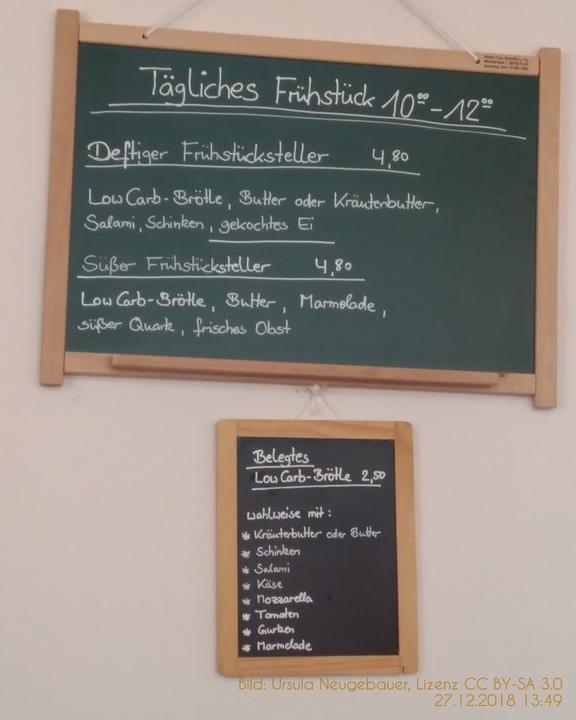 Tägliches Frühstück 10⁰⁰-12⁰⁰
Deftiger Frühstücksteller 4,80
Low Carb-Brötle, Butter oder Kräuterbutter,
Salami, Schinken, gekochtes Ei
Süßer Frühstücksteller 4,80
Low Carb-Brötle, Butter, Marmelade,
süßer Quark, frisches Obst
Belegtes
Low Carb-Brötle 2,50
wahlweise mit:
* Kräuterbutter oder Butter
* Schinken
* Salami
* Käse
* Mozzarella
* Tomaten
* Gurken
* Marmelade
Bild: Ursula Neugebauer, Lizenz CC BY-SA 3.0
27.12.2018 13:49